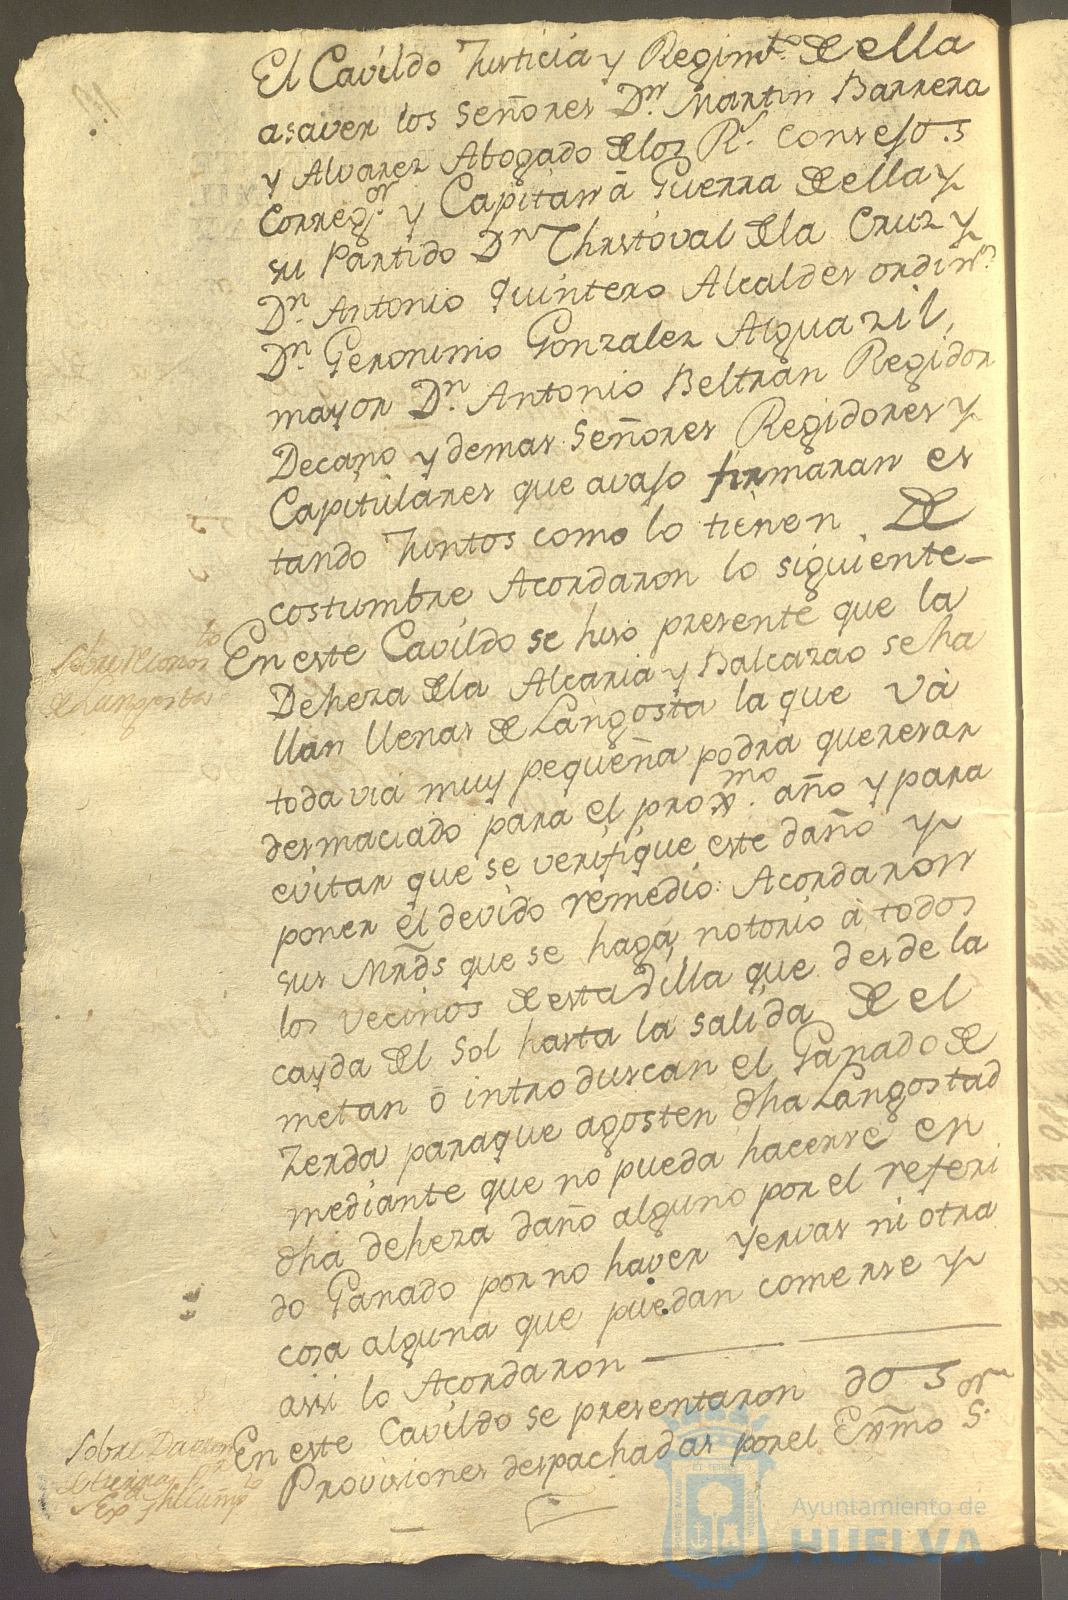 El Cavildo Justicia y Regimto. de ella
asaver los Señores Dn. Martin Barrera
y Alvarez Abogado delos Rs. Consejos
Corregor. y Capitan á Guerra de ella y
su Partido Dn Christoval dela Cruz y
Dn. Antonio Quintero Alcaldes ordins.
Dn. Geronimo Gonzalez Alguazil
mayor Dn. Antonio Beltran Regidor
Decano y demas Señores Regidores y
Capitulares que avajo firmaran es
tando Juntos como lo tienen de
costumbre Acordaron lo siguiente
En este Cavildo se hiso presente que la
Deheza dela Alcaria y Balcazao se ha
llan llenas de Langosta la que vá
todavia muy pequeña podra queresar
desmaciado para el proxmo. año y para
evitar que se verifique este daño y
poner el devido remedio: Acordaron
sus Mrds que se haga notorio á todos
los vecinos de esta dilla que desde la
cayda del Sol hasta la salida de el
metan ó introduscan el Ganado de
Zerda paraque agosten dha Langosta
mediante que no pueda hacerse en
dha deheza daño alguno por el referi
do Ganado por no haver Yervas ni otra
cosa alguna que puedan comerse y
assi lo Acordaron
En este Cavildo se presentaron dos
Provisiones despachadas por el Exmo Sor.
Sobre
de Langosta
Sobre
Ayuntamiento de
HUELVA